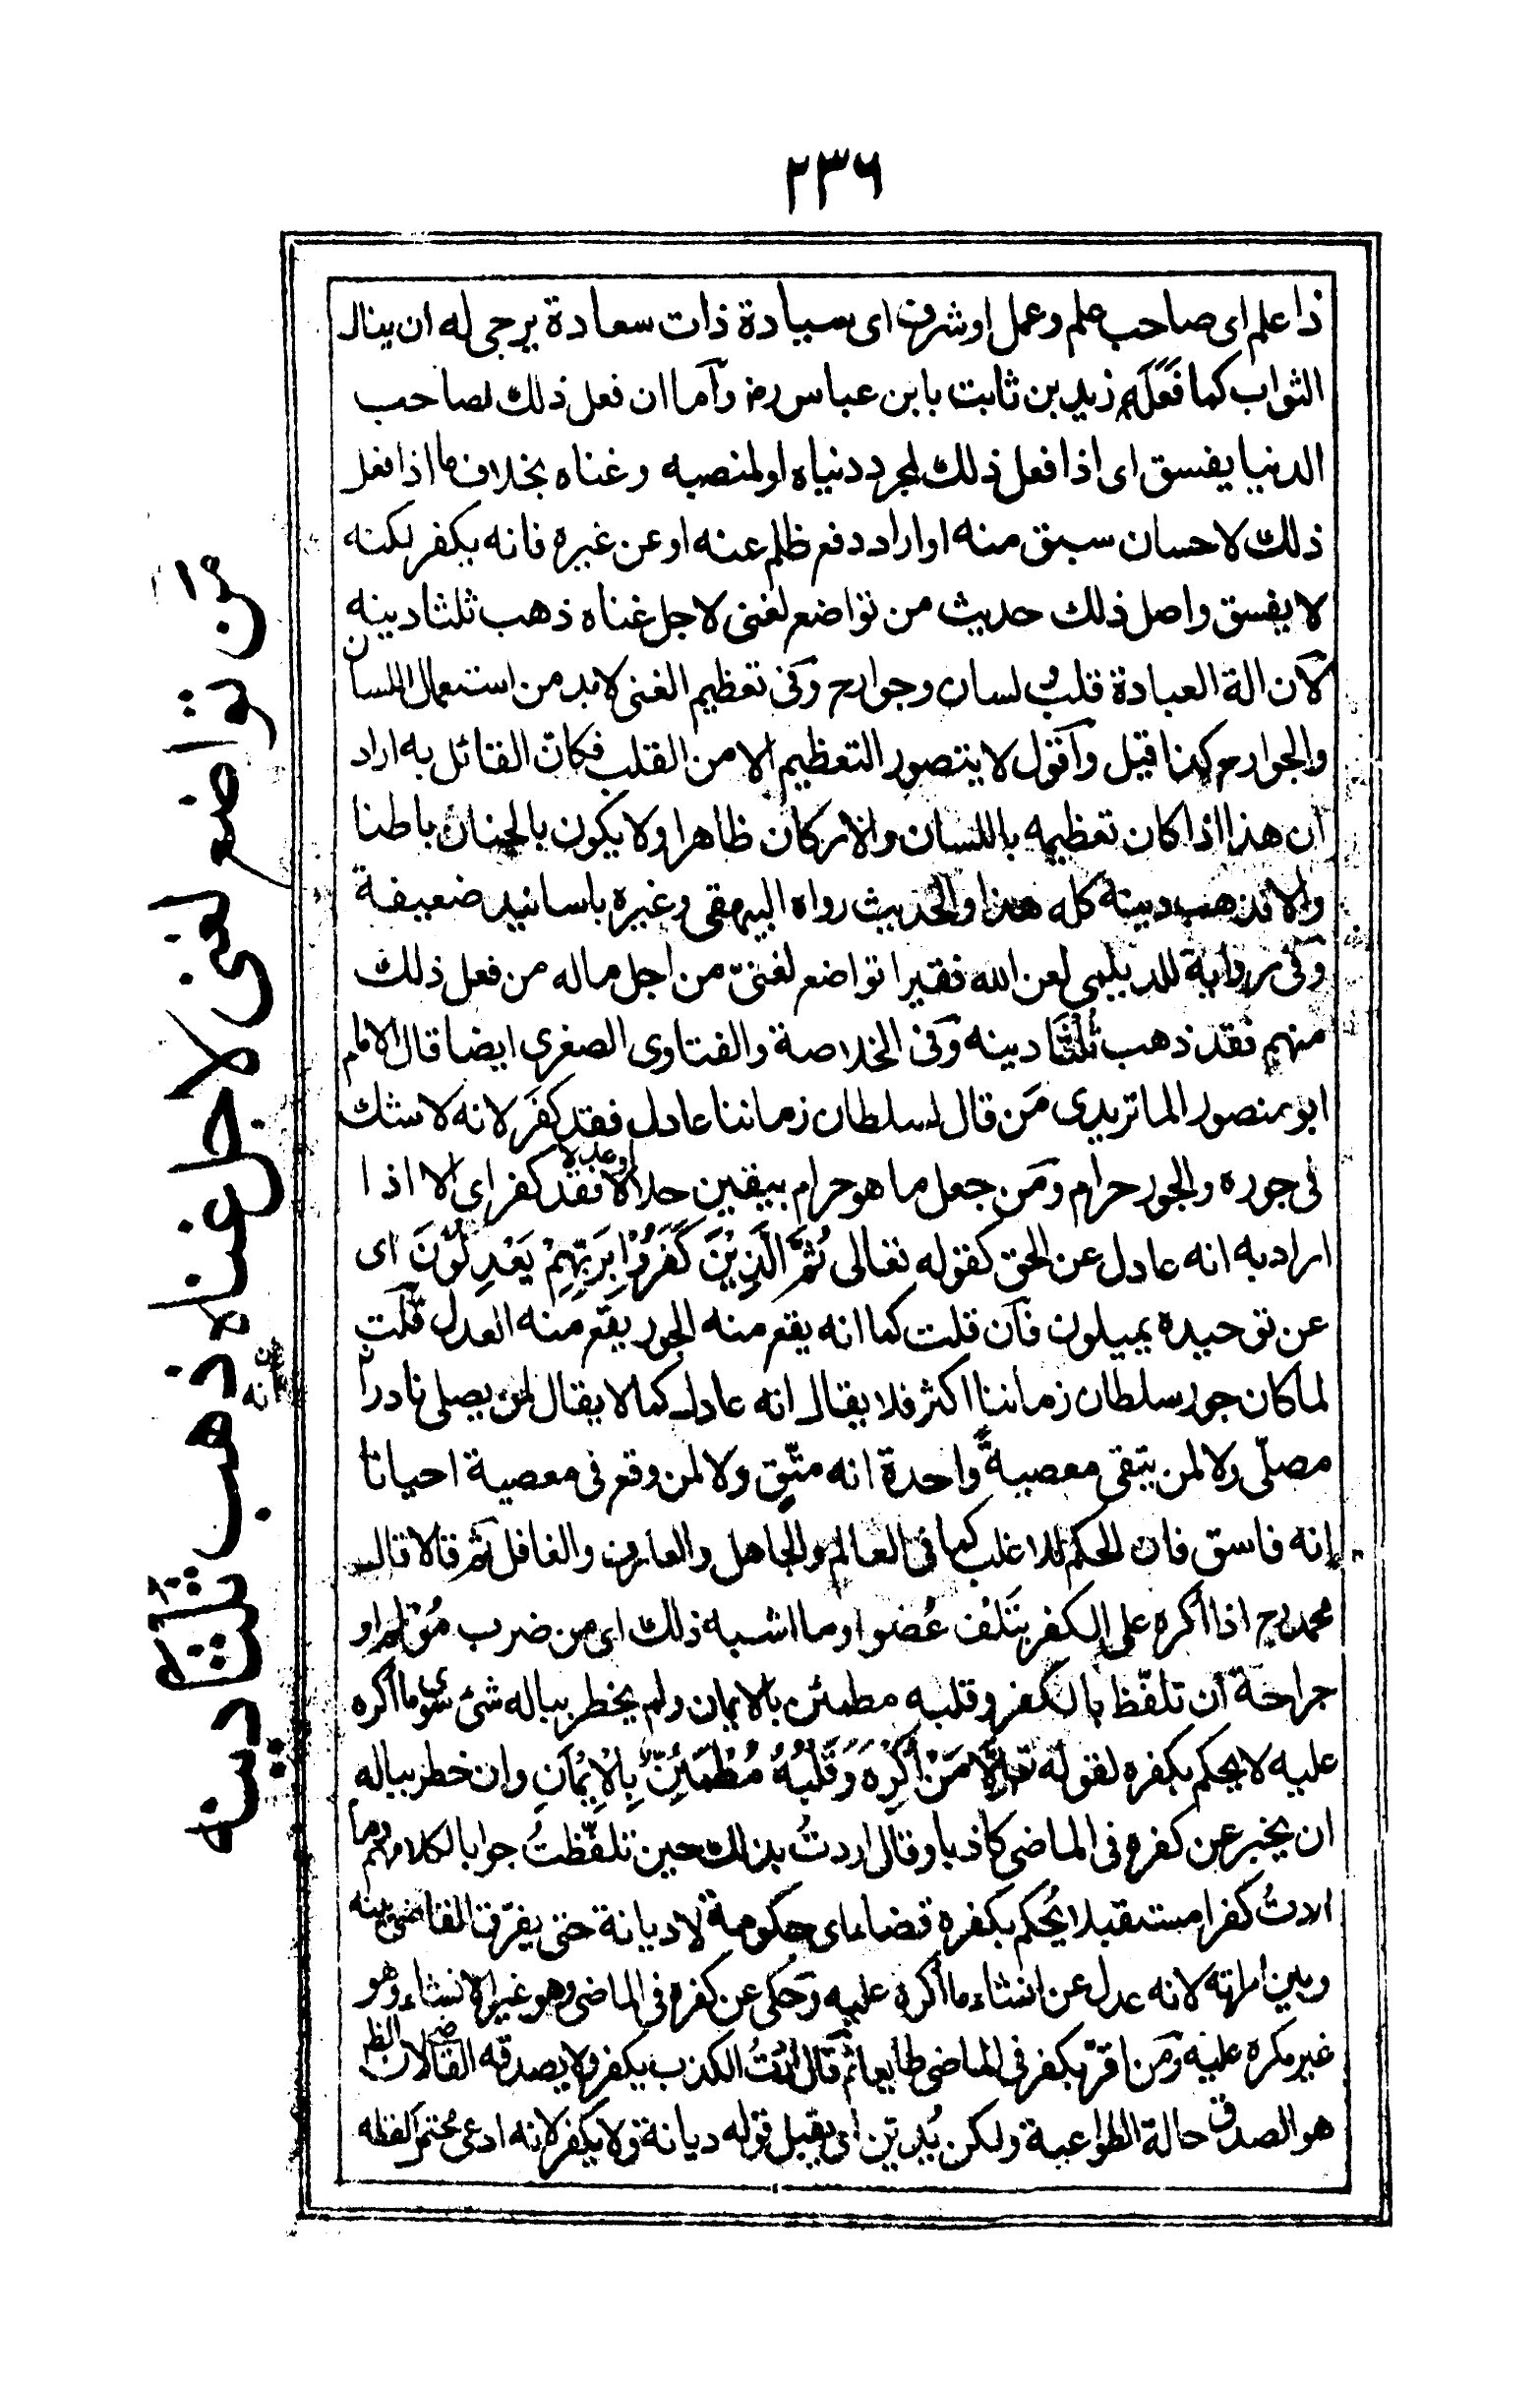 ٢٣٦
ذا علم اى صاحب علم وعمل او شرف اى سيادة ذات سعادة يرجى له ان ينال
الثواب كما فعله زيد بن ثابت بابن عباس رض واما ان فعل ذلك لصاحب
الدنيا يفسق اى اذا فعل ذلك لمجرد دنياه او لمنصبه وغناه بخلاف ما اذا فعل
ذلك لاحسان سبق منه او اراد دفع ظلم عنه او عن غيره فانه يكفر لكنه
لا يفسق واصل ذلك حديث من تواضع لغنى لاجل غناه ذهب ثلثا دينه
لان الة العبادة قلب و لسان وجوارح وفى تعظيم الغنى لابد من استعمال اللسان
والجوارح كذا قيل واقول لا يتصور التعظيم الا من القلب فكان القائل به اراد
ان هذا اذا كان تعظيمه باللسان والاركان ظاهرا ولا يكون بالجنان باطنا
والا فذهب دينه كله هذا والحديث رواه البيهقى وغيره باسانيد ضعيفة
وفى رواية للديلمى لعن الله فقيرا تواضع لغنىّ من اجل ماله من فعل ذلك
منهم فقد ذهب ثلثا دينه وفى الخلاصة والفتاوى الصغرى ايضا قال الامام
ابو منصور الماتريدى من قال لسلطان زماننا عادل فقد كفر لانه لا شك
فى جوره والجور حرام ومن جعل ما هو حرام بيقين حلالا او عدلا فقد كفر اى الا اذا
اراد به انه عادل عن الحق كقوله تعالى ثُمَّ الَّذِيْنَ كَفَرُوْا بِرَبِّهِمْ يَعْدِلُوْنَ اى
عن توحيده يميلون فان قلت كما انه يقع منه الجور يقع منه العدل قلت
لما كان جور سلطان زماننا اكثر فلا يقال انه عادل كما لا يقال لمن يصلى نادرا
مصلّى ولا لمن يتقى معصيةً واحدة انه متّق ولا لمن وقع فى معصية احيانا
انه فاسق فان الحكم للاغلب كما فى العالم والجاهل والعارف والغافل ثم قالا قال
محمد رح اذا اكره على الكفر بتَلْف عُضو او ما اشبه ذلك اى من ضرب مُؤلم او
جراحة ان تلفّظ بالكفر وقلبه مطمئن بالايمان ولم يخطر بباله شئ سوى ما اكره
عليه لا يحكم بكفره لقوله تعالى اِلَّا مَنْ اُكْرِهَ وَقَلْبُهُ مُطْمَئِنٌّ بِالْاِيْمَانِ وان خطر بباله
ان يخبر عن كفره فى الماضى كاذبا وقال اردتُ بذلك حين تلفّظتُ جوابا لكلامهم وما
اردتُ كفرا مستقبلا يُحكم بكفره قضاء اى حكومة لا ديانة حتى يفرّق القاضى بينه
وبين امراته لانه عدل عن انشاء ما اكره عليه وحكى عن كفره فى الماضى وهو غير الانشاء وهو
غير مكره عليه ومن اقرّ بكفر فى الماضى طايعا ثم قال اردتُ الكذب يكفر ولا يصدقه القاضى لان الظ
هو الصدق حالة الطواعية ولكن يُديّن اى يقبل قوله ديانة ولا يكفر لانه ادعى محتمل لفظه
من تواضع لغنى لاجل غناه ذهب ثلثا دينه